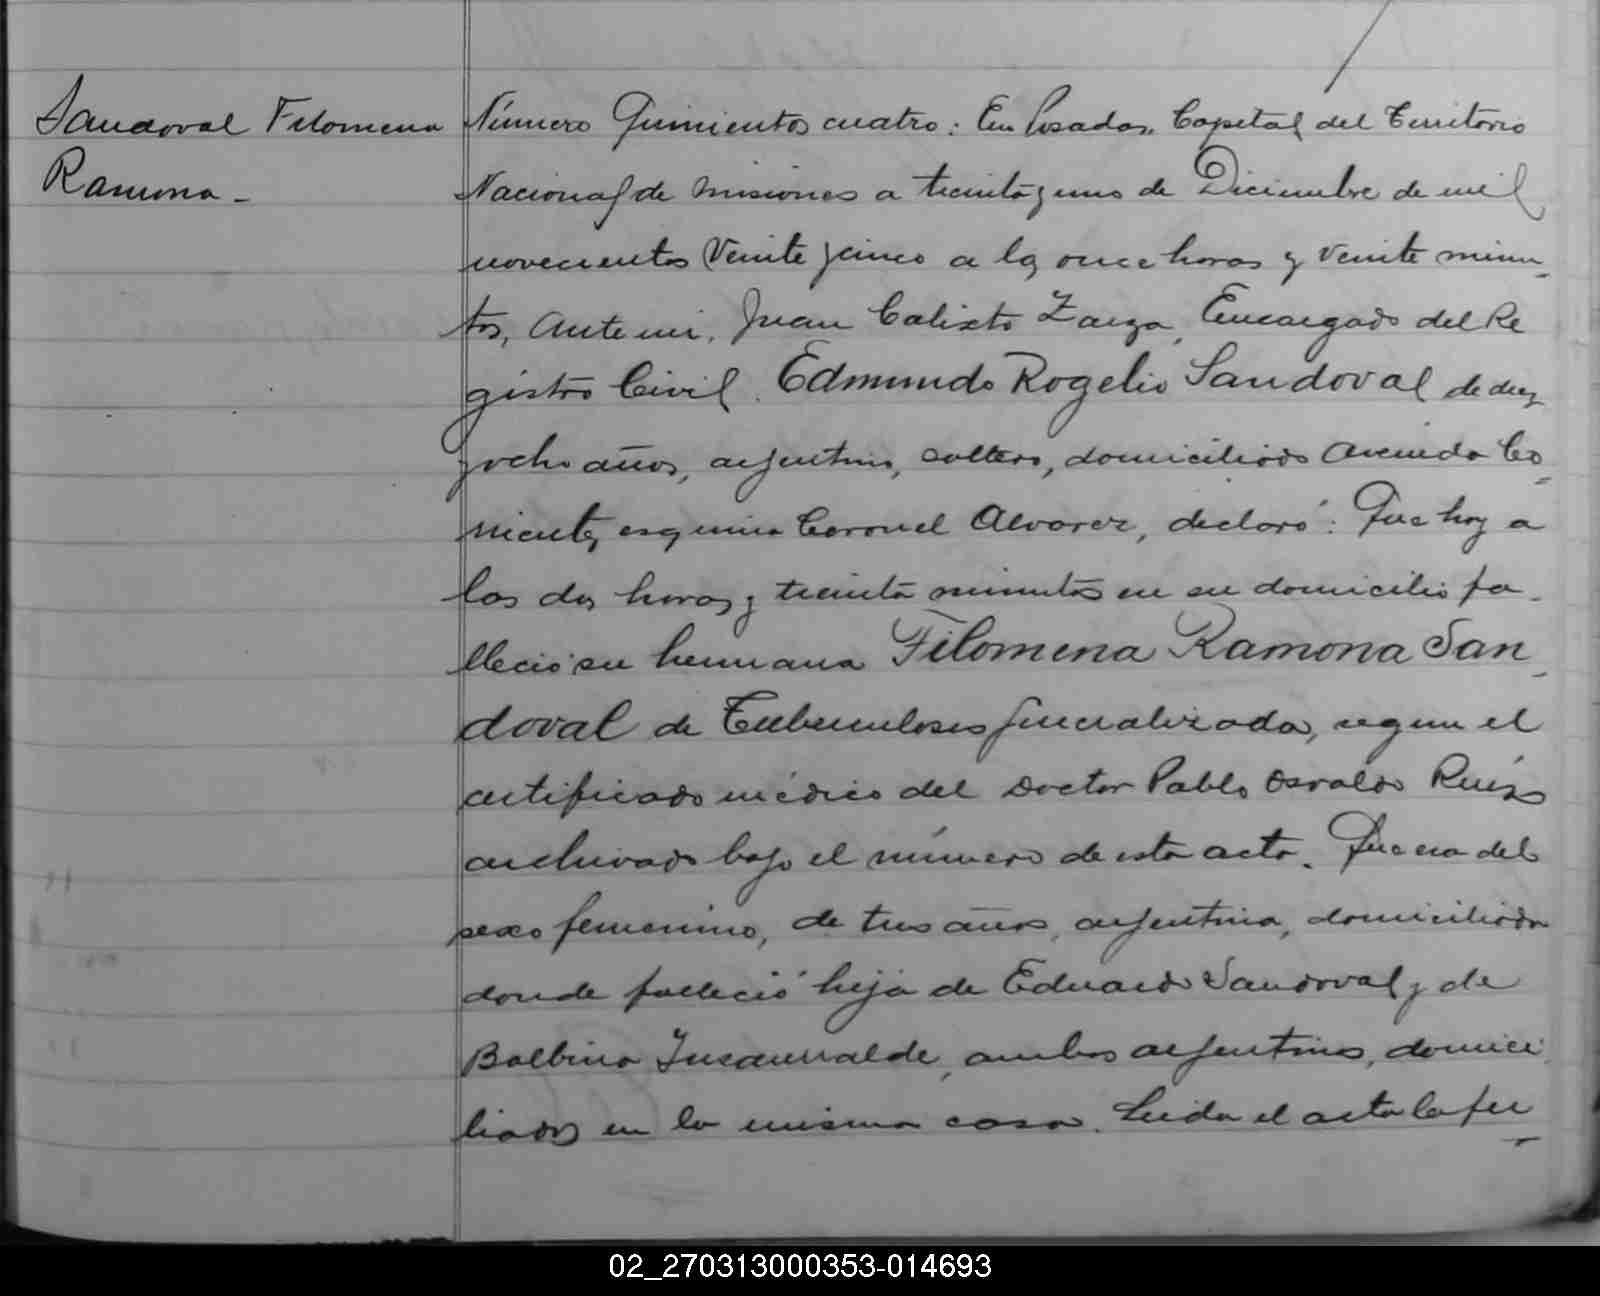 Sandoval Filomena
Ramona -
Número Quinientos cuatro: En Posadas, Capital del Territorio
Nacional de Misiones a treinta y uno de Diciembre de mil
novecientos Veinte y cinco a las once horas y veinte minu-
tos, Ante mi, Juan Calixto Zarza, Encargado del Re
gistro Civil, Edmundo Rogelio Sandoval de diez
y ocho años, argentino, soltero, domiciliado Avenida Co-
rrientes esquina Coronel Alvarez, declaró: Que hoy a
las dos horas y treinta minutos en su domicilio fa-
lleció su hermana Filomena Ramona San-
doval de Tuberculosis generalizada, segun el
certificado médico del Doctor Pablo Osvaldo Ruíz
archivado bajo el número de esta acta. Que era del
sexo femenino, de tres años, argentina, domiciliada
donde falleció hija de Eduardo Sandoval y de
Balbina Insaurralde, ambos argentinos, domici
liados en la misma casa. Leida el acta la fir-
02_270313000353-014693